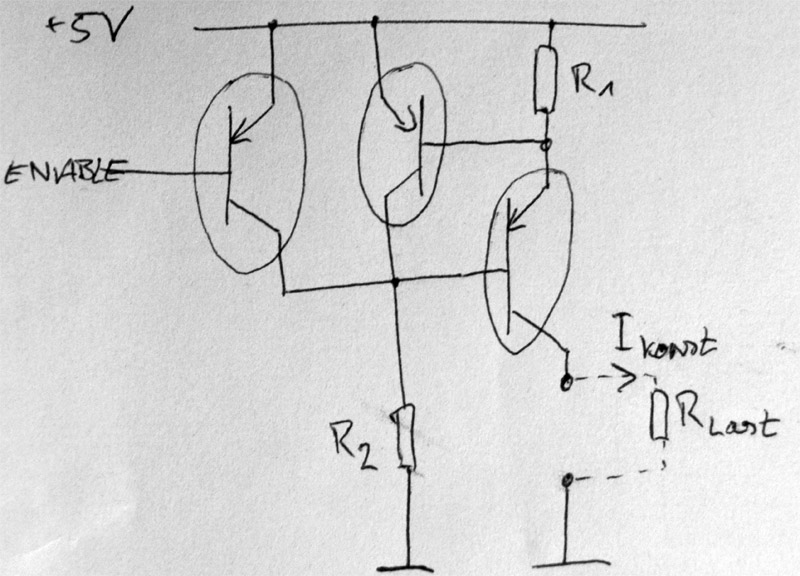 +5V
R1
ENABLE
Ikonst
RLast
R2